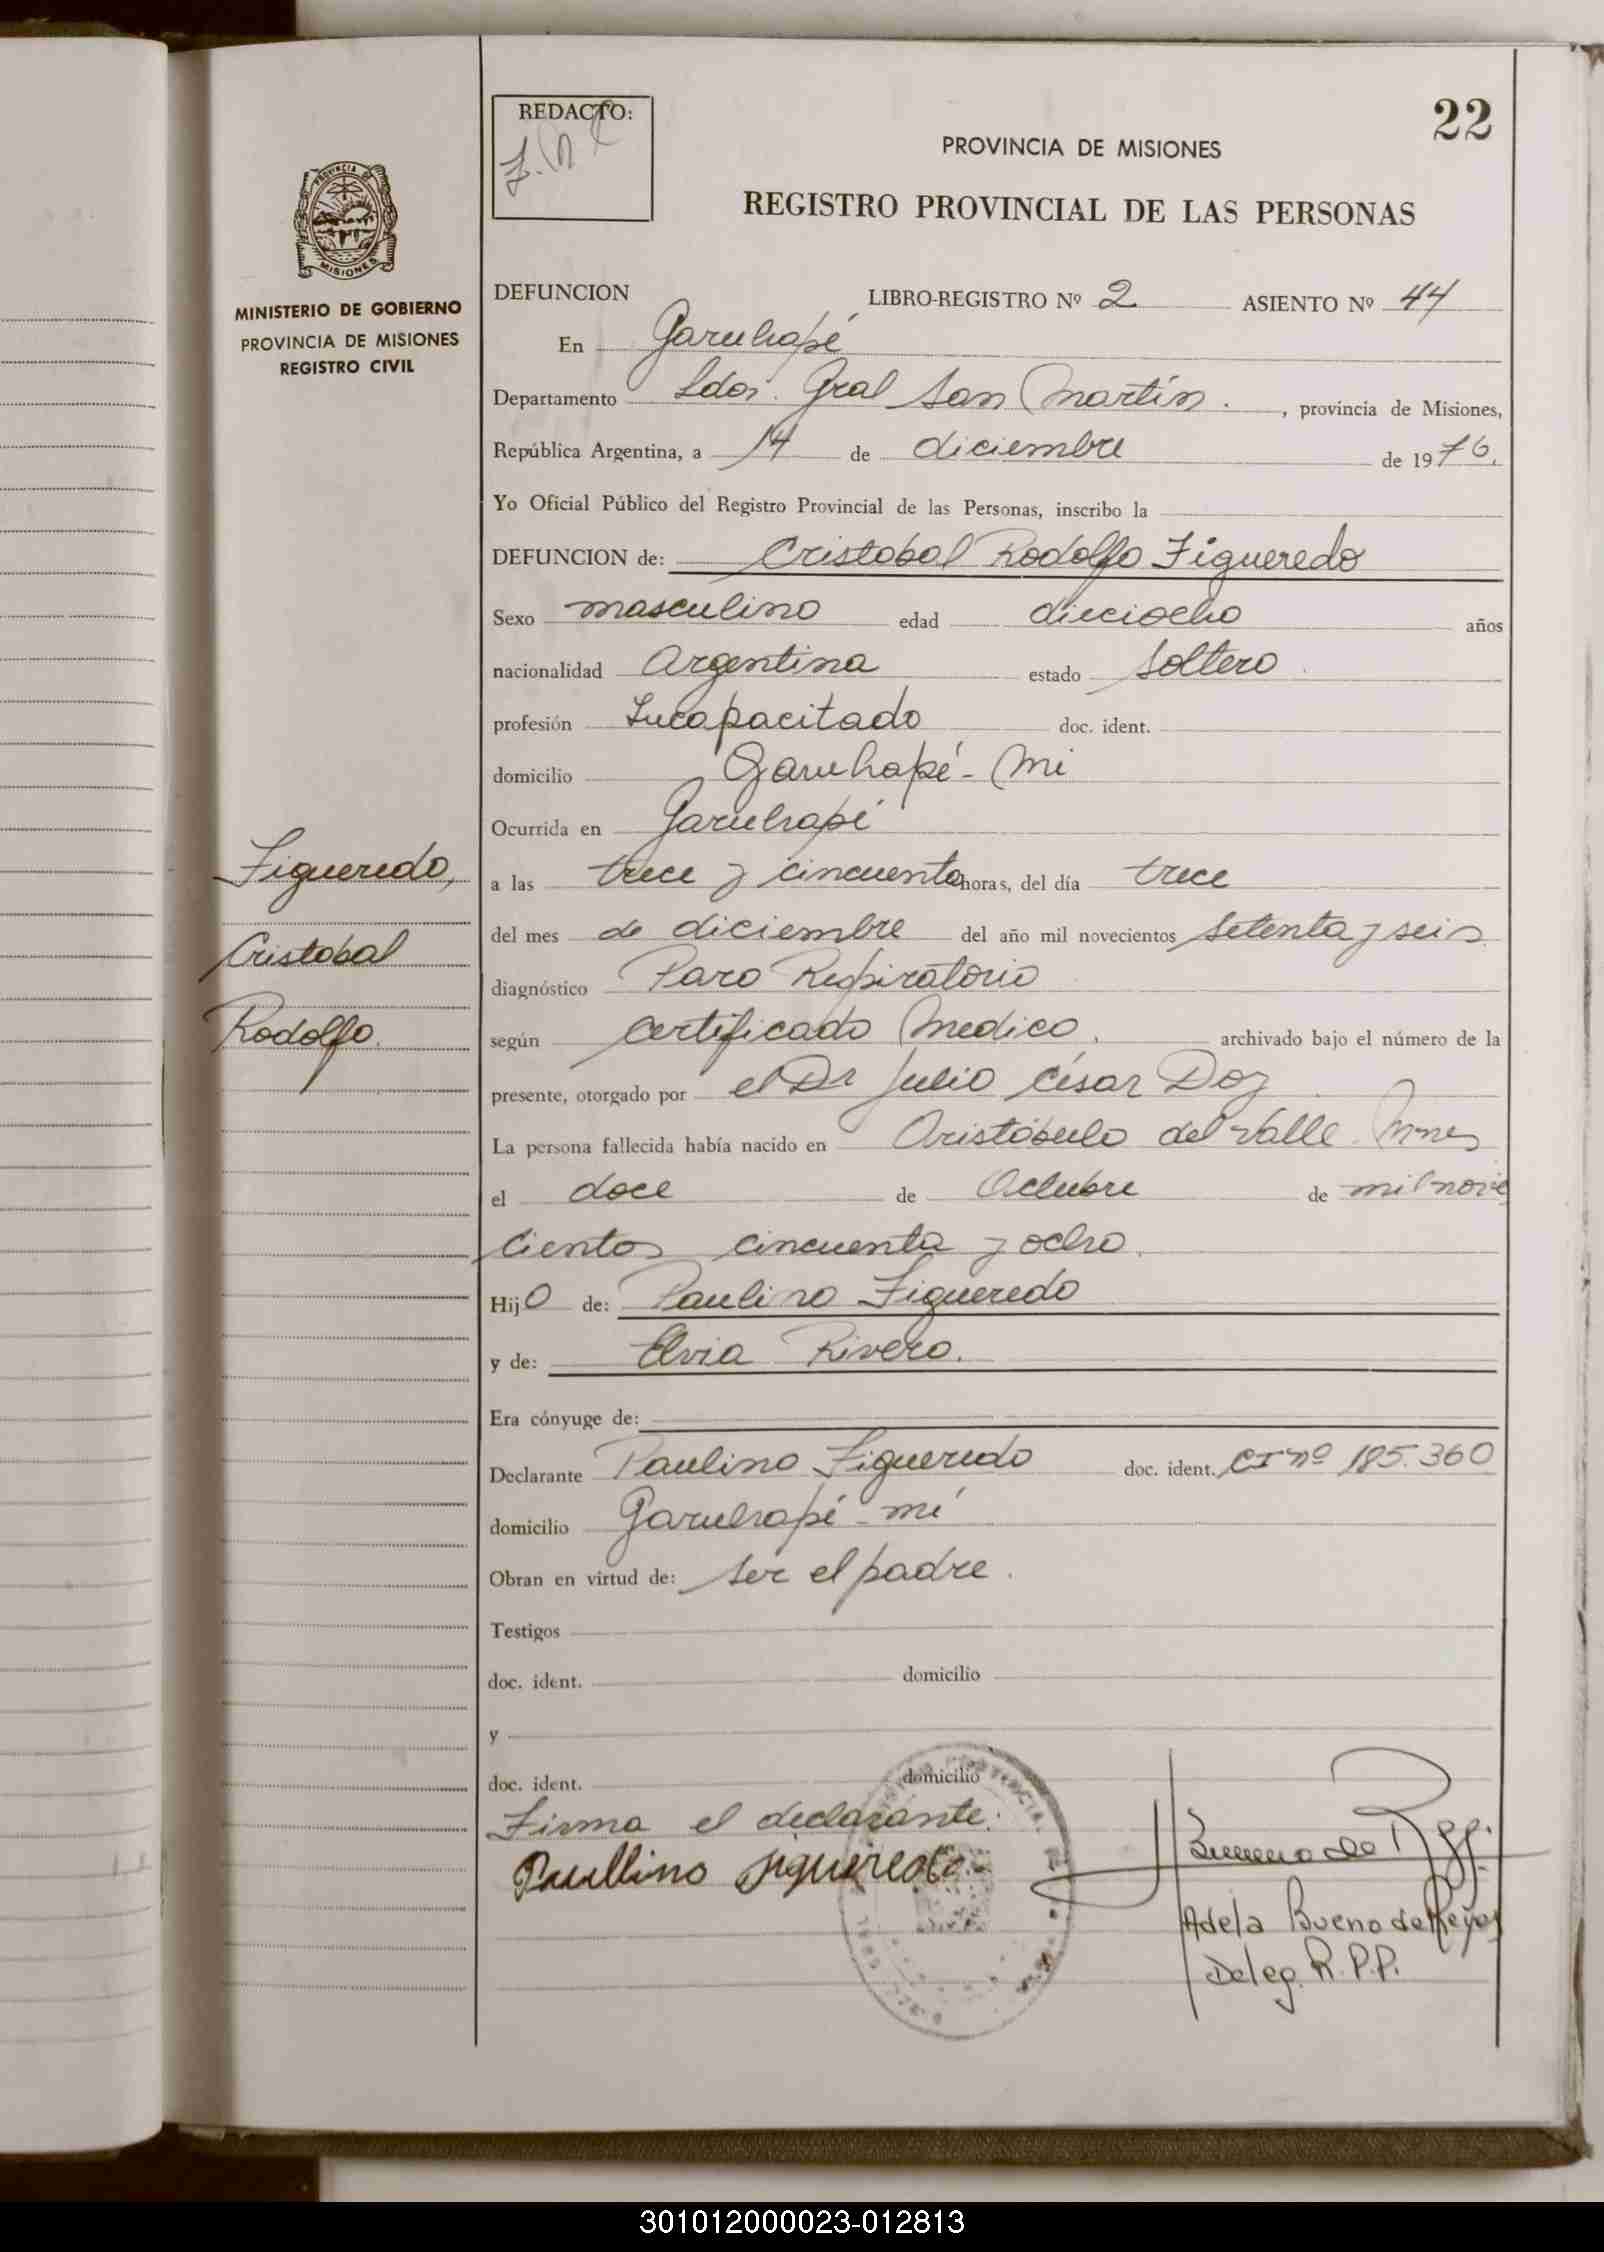 22
REDACTO:
PROVINCIA DE MISIONES
REGISTRO PROVINCIAL DE LAS PERSONAS
PROVINCIA DE
MISIONES
MINISTERIO DE GOBIERNO
PROVINCIA DE MISIONES
REGISTRO CIVIL
DEFUNCION LIBRO-REGISTRO Nº 2 ASIENTO Nº 44
En Garuhapé
Departamento Ldor. Gral San Martín. , provincia de Misiones,
República Argentina, a 14 de diciembre de 1976.
Yo Oficial Público del Registro Provincial de las Personas, inscribo la
DEFUNCION de: Cristobal Rodolfo Figueredo
Sexo masculino edad dieciocho años
nacionalidad Argentina estado Soltero
profesión Incapacitado doc. ident.
domicilio Garuhapé - Mi
Ocurrida en Garuhapé
Figueredo,
Cristobal
Rodolfo.
a las trece y cincuenta horas, del día trece
del mes de diciembre del año mil novecientos setenta y seis
diagnóstico Paro Respiratorio
según certificado Medico, archivado bajo el número de la
presente, otorgado por el Dr Julio César Doz
La persona fallecida había nacido en Aristóbulo del Valle. Mnes
el doce de Octubre de mil nove
cientos cincuenta y ocho.
Hijo de: Paulino Figueredo
y de: Elvia Rivero.
Era cónyuge de:
Declarante Paulino Figueredo doc. ident. CI nº 185.360
domicilio Garuhapé - mí
Obran en virtud de: ser el padre.
Testigos
doc. ident. domicilio
y
doc. ident. domicilio
Firma el declarante:
Paullino Figueredo
Adela Bueno de Reyes
Deleg. R.P.P.
301012000023-012813